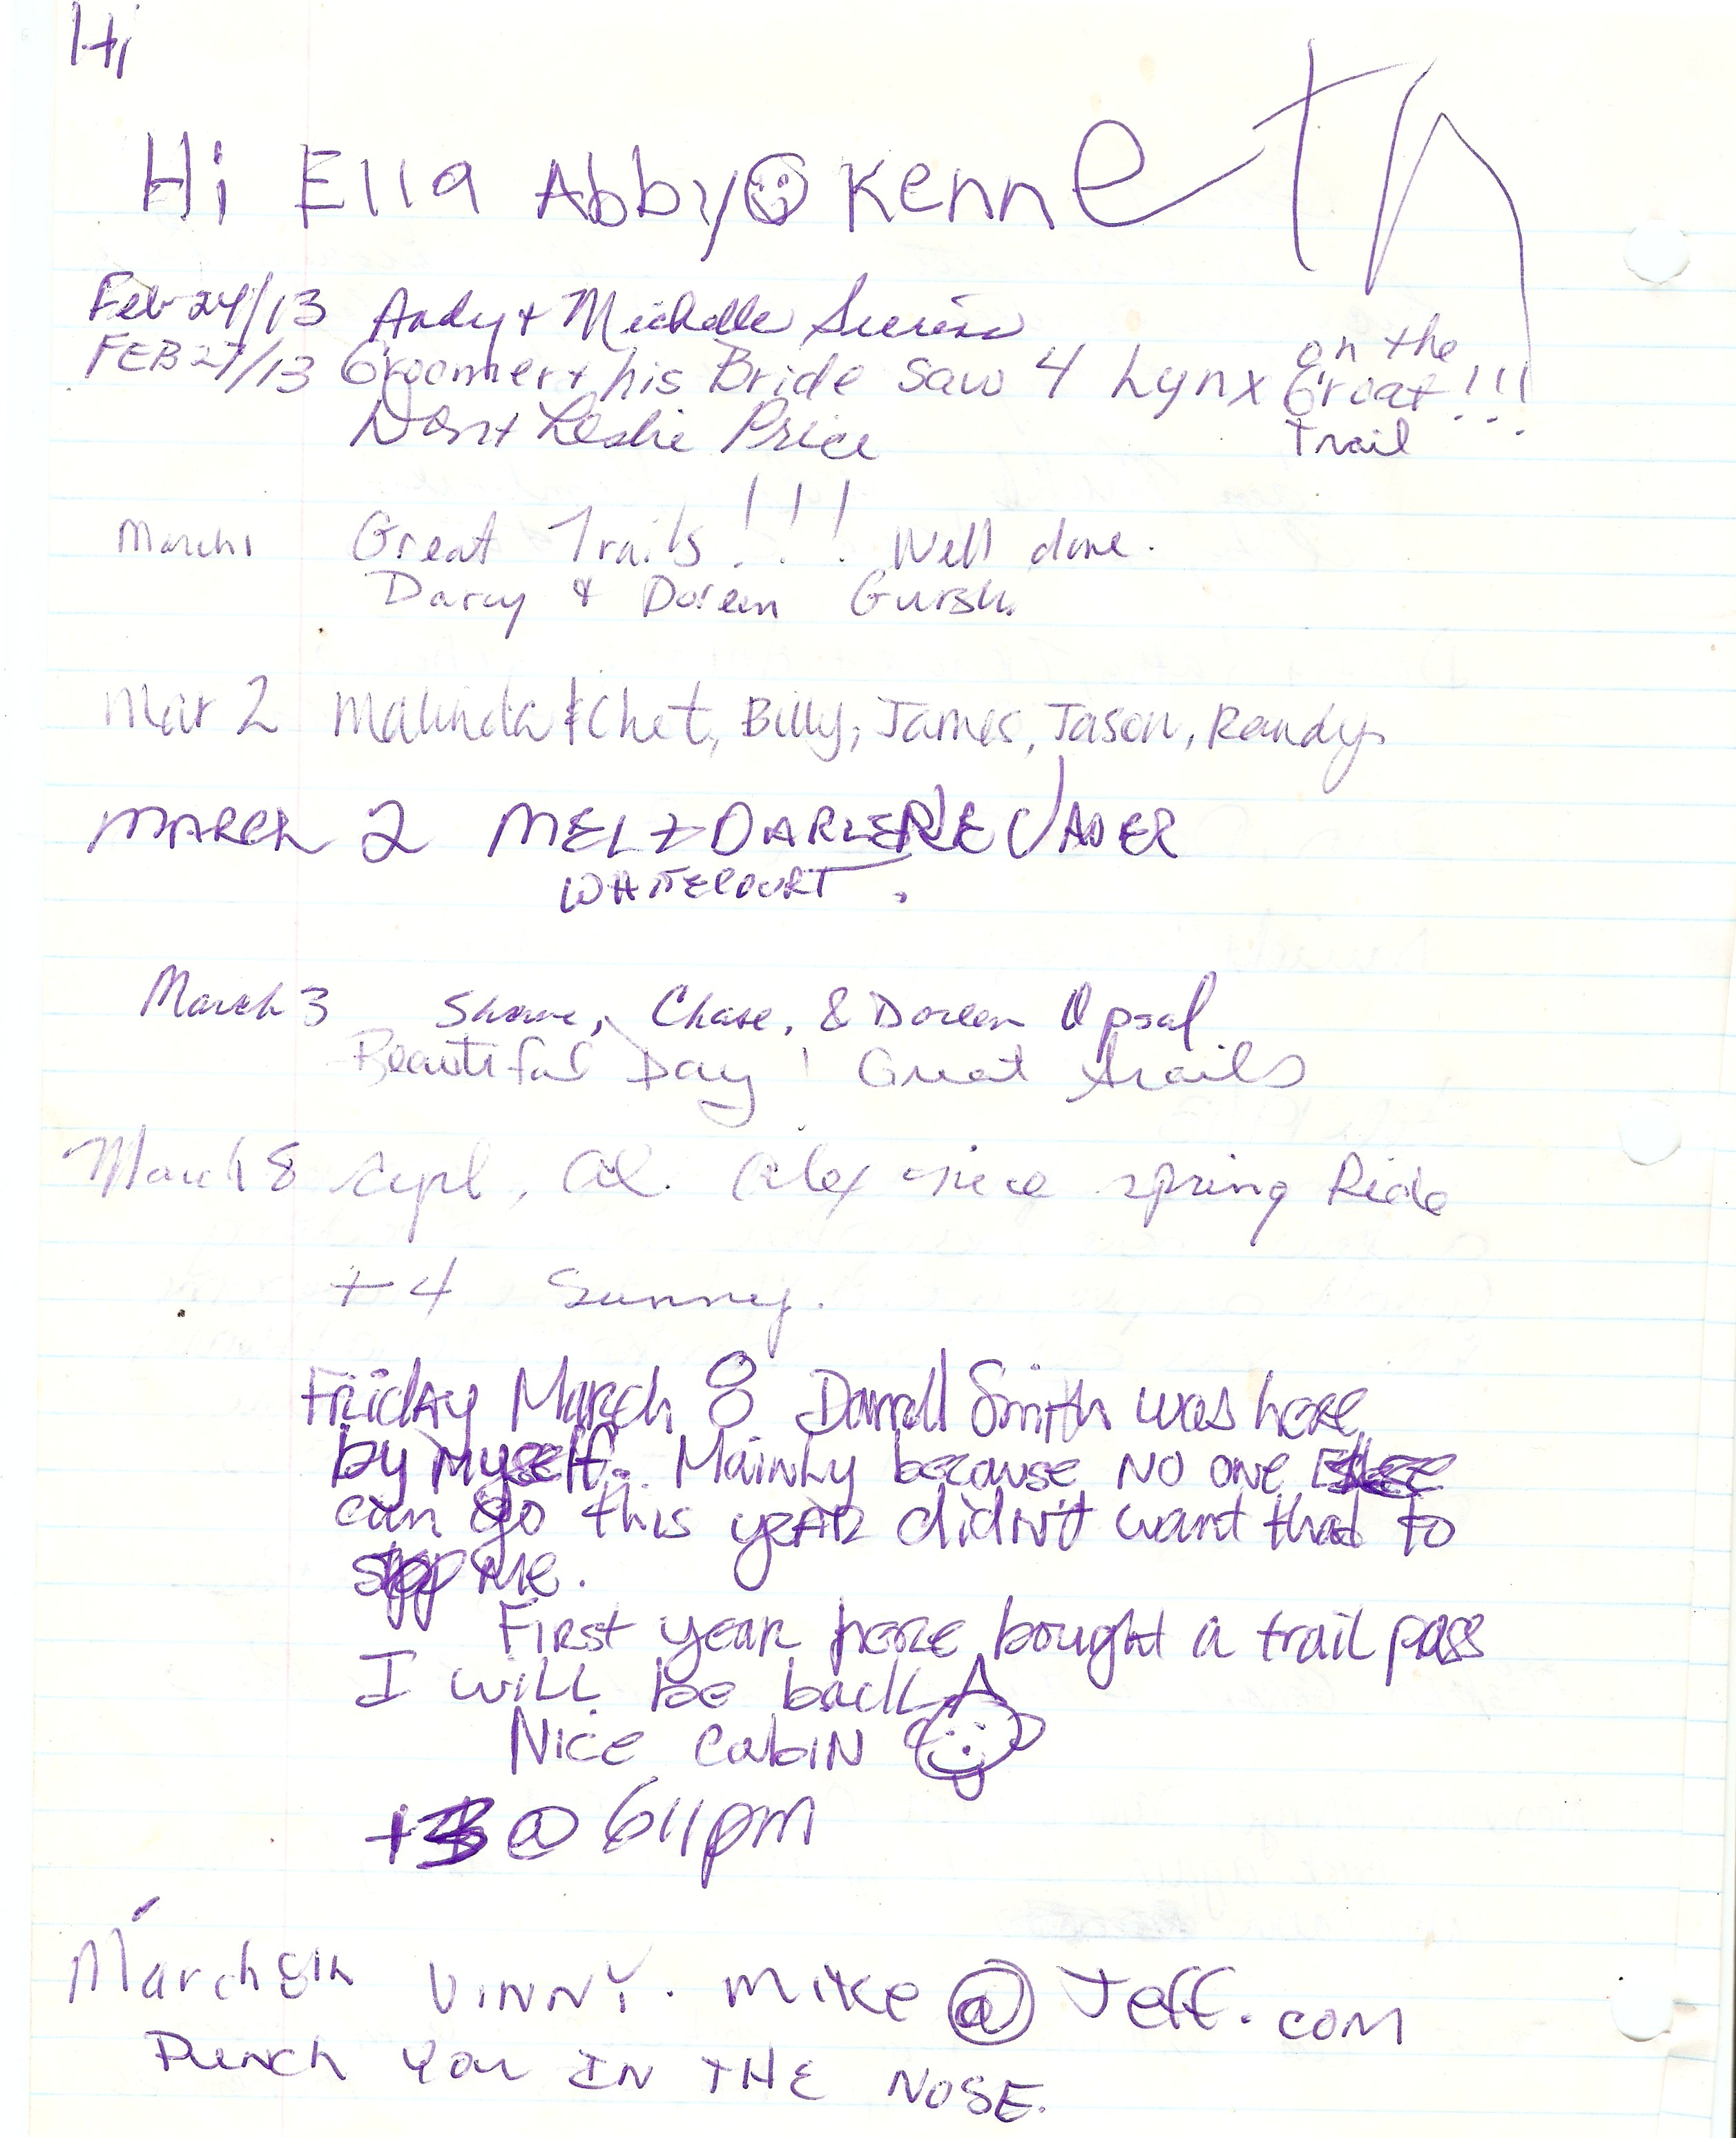 Hi
Hi Ella Abby Kenneth
Feb 24/13 Andy + Michelle
FEB 27/13 Groomer + his Bride saw 4 Lynx on the Groat !!!
Trail
Don + Leslie Price
March 1 Great Trails !!! Well done.
Darcy & Doreen Gursh
Mar 2 Malinda & Chet, Billy, James, Jason, Randy
MARCH 2 MEL + DARLENE VADER
WHITECOURT.
March 3 Shane, Chase, & Doreen Opsal
Beautiful Day ! Great trails
March 8 Al. Alex nice spring Ride
+4 Sunny.
Friday March 8 Darrell Smith was here
by myself. Mainly because no one
can go this year didn't want that to
stop me.
First year here bought a trail pass
I will be back
Nice cabin
+3 @ 611pm
March 8th Vinny. Mike @ Jeff.com
Punch you IN THE NOSE.